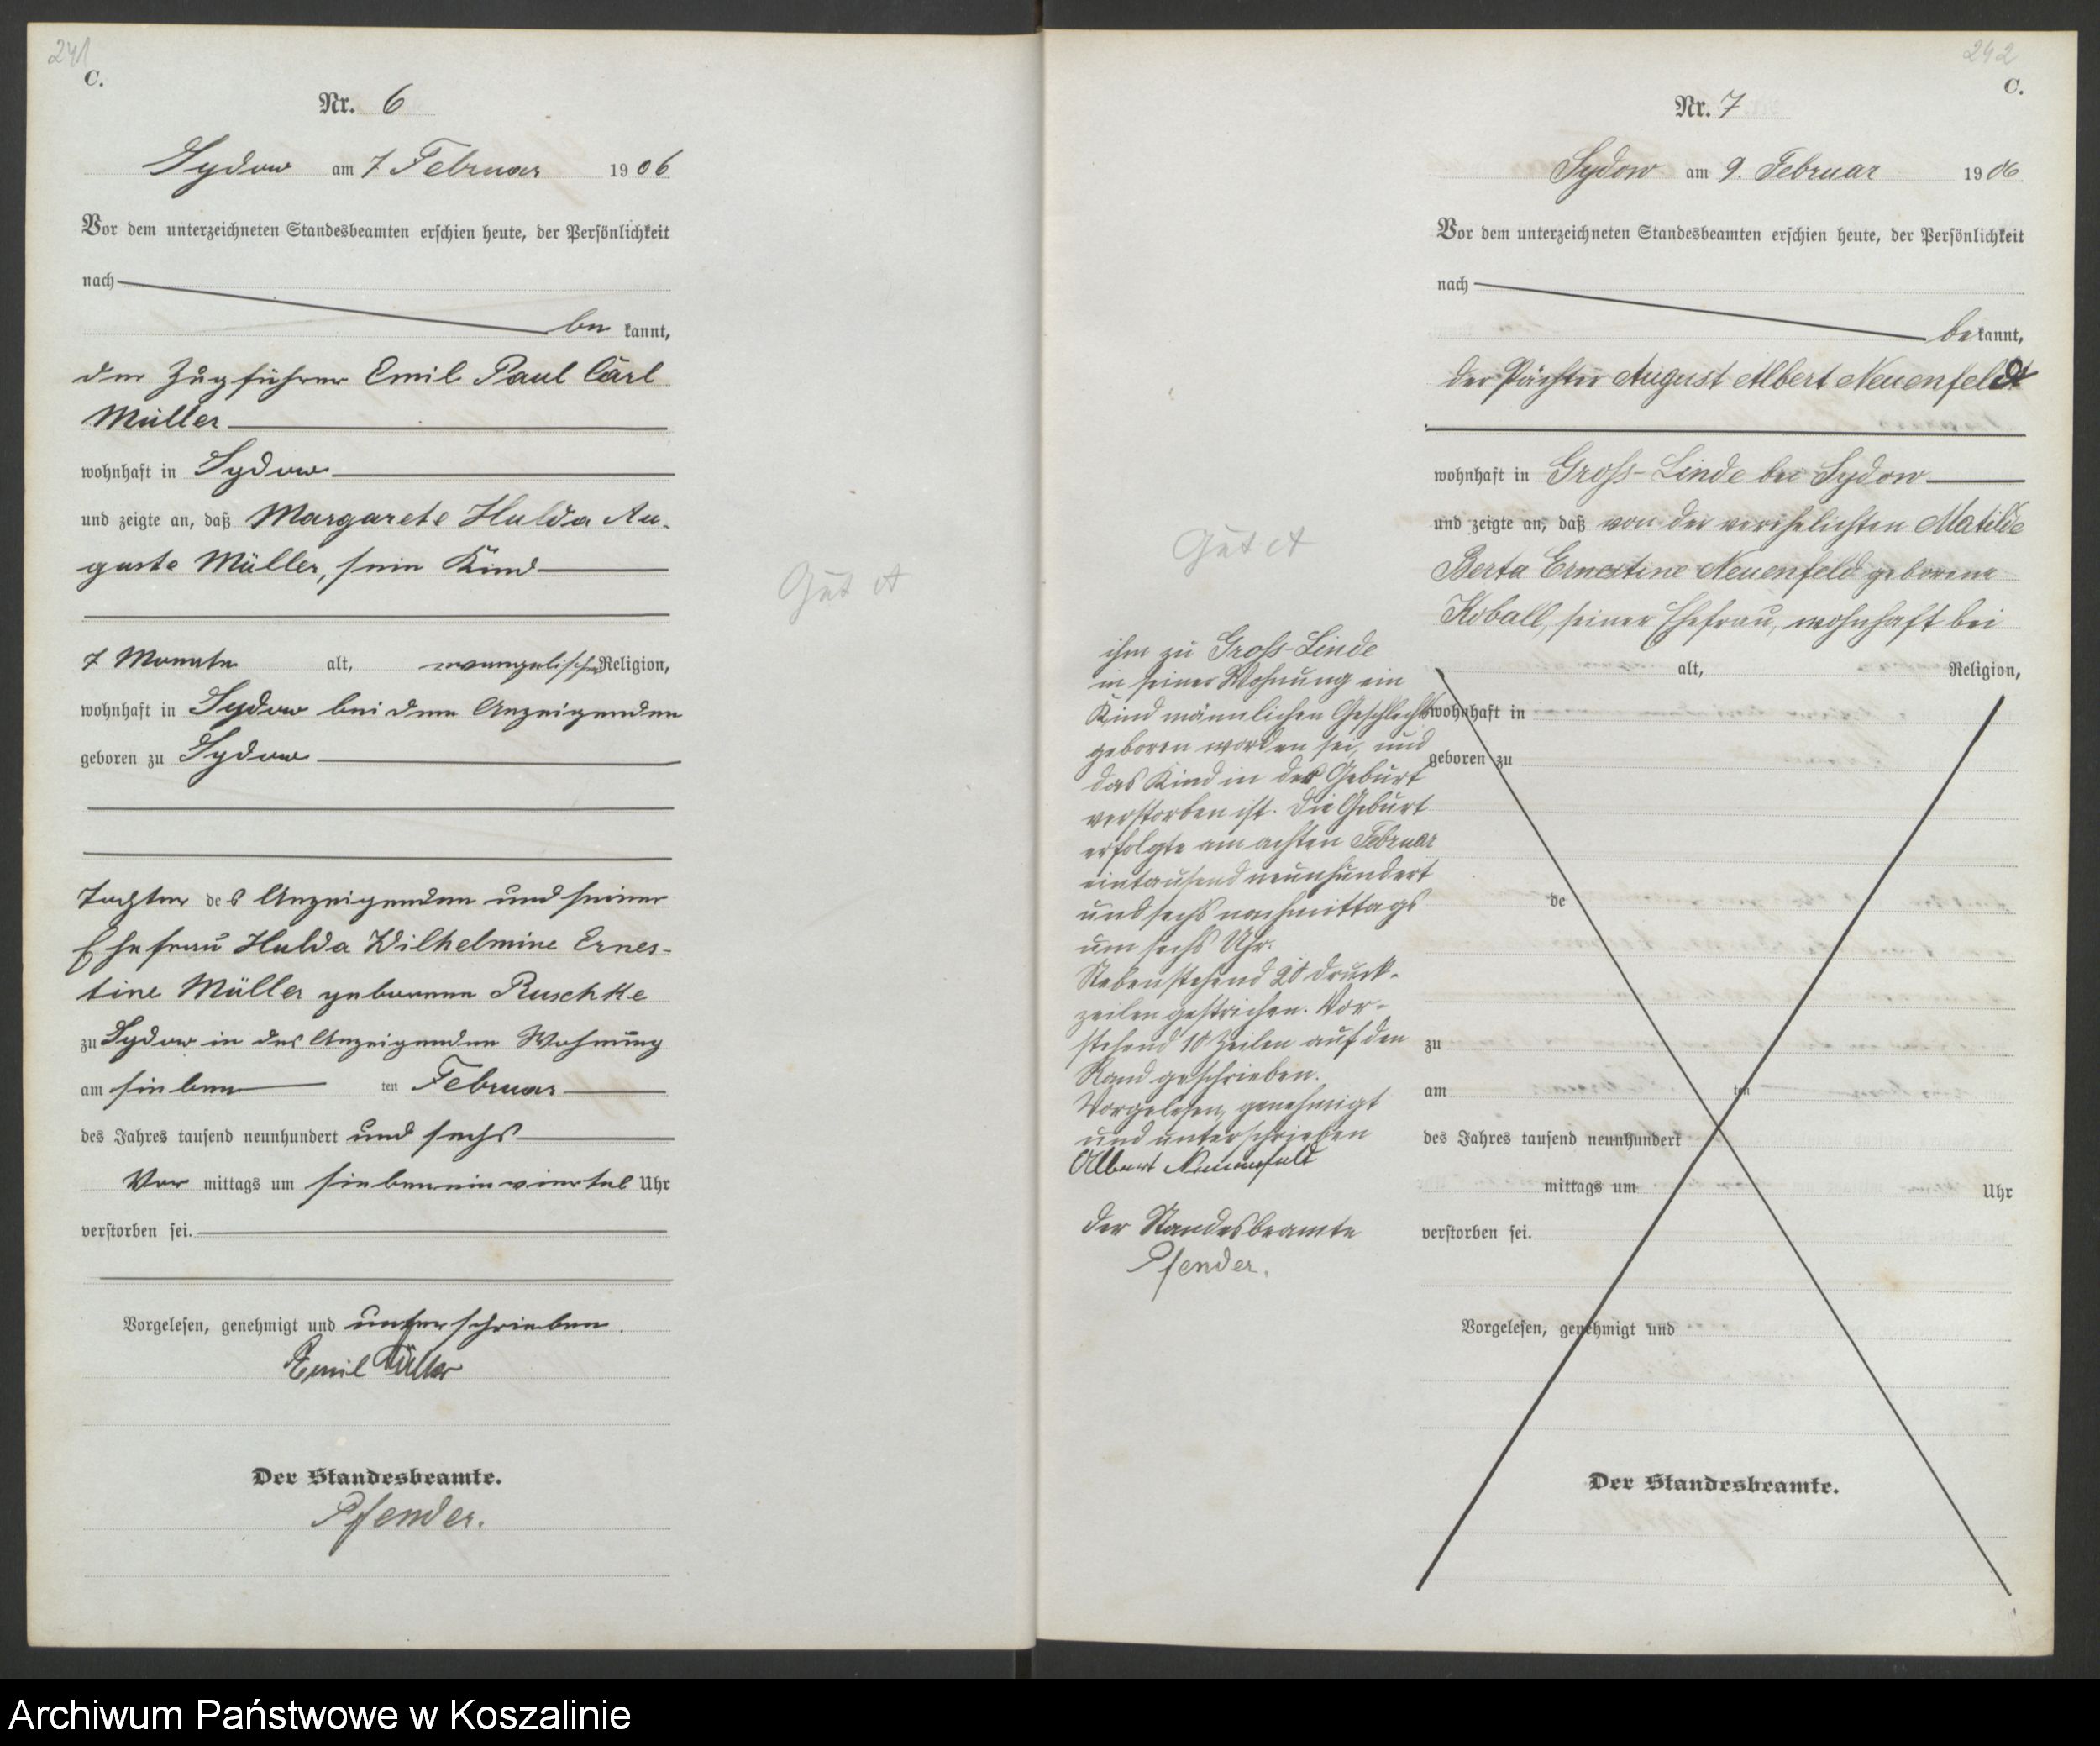 241
C.
Nr. 6
Sydow am 7 Februar 1906
Vor dem unterzeichneten Standesbeamten erschien heute, der Persönlichkeit
nach
be kannt,
der Zugführer Emil Paul Carl
Müller
wohnhaft in Sydow
und zeigte an, daß Margarete Hulda Au-
guste Müller, sein Kind
7 Monate alt, evangelischer Religion,
wohnhaft in Sydow bei dem Anzeigenden
geboren zu Sydow
Tochter des Anzeigenden und seiner
Ehefrau Hulda Wilhelmine Ernes-
tine Müller geborenen Ruschke
zu Sydow in des Anzeigenden Wohnung
am sieben ten Februar
des Jahres tausend neunhundert und sechs
Vor mittags um sieben ein viertel Uhr
verstorben sei.
Vorgelesen, genehmigt und unterschrieben.
Emil Müller
Der Standesbeamte.
Pfender.
242
C.
Nr. 7
Sydow am 9. Februar 1906
Vor dem unterzeichneten Standesbeamten erschien heute, der Persönlichkeit
nach
bekannt,
der Pächter August Albert Neuenfeldt
wohnhaft in Gross-Linde bei Sydow
und zeigte an, daß von der verehelichten Matilde
Berta Ernestine Neuenfeld geborene
Koball, seiner Ehefrau, wohnhaft bei
ihm zu Gross-Linde
in seiner Wohnung ein
Kind männlichen Geschlechts
geboren worden sei, und
das Kind in der Geburt
verstorben ist. Die Geburt
erfolgte am achten Februar
eintausend neunhundert
und sechs nachmittags
um sechs Uhr.
Nebenstehend 20 Druck-
zeilen gestrichen. Vor-
stehend 10 Zeilen auf den
Rand geschrieben.
Vorgelesen, genehmigt
und unterschrieben
Albert Neuenfeld
Der Standesbeamte
Pfender.
alt, Religion,
wohnhaft in
geboren zu
de
zu
am ten
des Jahres tausend neunhundert
mittags um Uhr
verstorben sei.
Vorgelesen, genehmigt und
Der Standesbeamte.
Archiwum Państwowe w Koszalinie